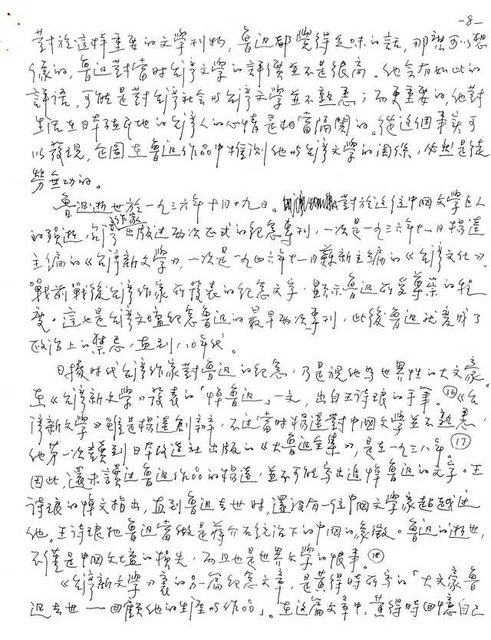 -8-
對於這樣重要的文學刊物，魯迅都覺得乏味的話，那麼可以想
像的，魯迅對當時台灣文學的評價並不是很高。他會有如此的
評語，可能是對台灣社會與台灣文學並不熟悉；而更重要的，他對
生活在日本殖民地的台灣人的心情是相當隔閡的。從這個事實可
以發現，企圖在魯迅作品中推測他與台灣文學的關係，必然是徒
勞無功的。
魯迅逝世於一九三六年十月十九日。對於這位中國文學巨人
的殞逝，台灣作家出版過兩次正式的紀念專刊，一次是一九三六年十一月楊逵
主編的《台灣新文學》，一次是一九四六年十一月蘇新主編的《台灣文化》。
戰前戰後台灣作家所發表的紀念文字，顯示魯迅所受尊崇的程
度。這也是台灣文壇紀念魯迅的最早兩次專刊，此後魯迅就變成了
政治上的禁忌，直到八〇年代。
日據時代台灣作家對魯迅的紀念，乃是視他為世界性的大文豪。
在《台灣新文學》發表的「悼魯迅」一文，出自王詩琅的手筆。⑯《台
灣新文學》雖是楊逵創辦，不過當時楊逵對中國文學並不熟悉，
他第一次讀到日本改造社出版的《大魯迅全集》，是在一九三八年。⑰
因此，還未讀過魯迅作品的楊逵，並不可能寫出追悼魯迅的文字。王
詩琅的悼文指出，直到魯迅去世時，還沒有一位中國文學家超越過
他。王詩琅把魯迅當做是蔣介石統治下的中國的象徵。魯迅的逝世，
不僅是中國文壇的損失，而且也是世界文學的恨事。⑱
《台灣新文學》裏的另一篇紀念文章，是黃得時所寫的「大文豪魯
迅去世——回顧他的生涯與作品」。在這篇文章中，黃得時回憶自己